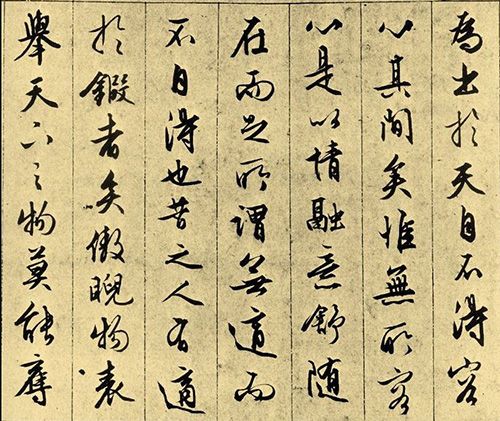 為出於天自不得容
心其間矣惟無所容
心是以情融意舒隨
在而足所謂無適而
不自得也昔之人有適
於鍛者矣傲睨物表
舉天下之物莫能奪